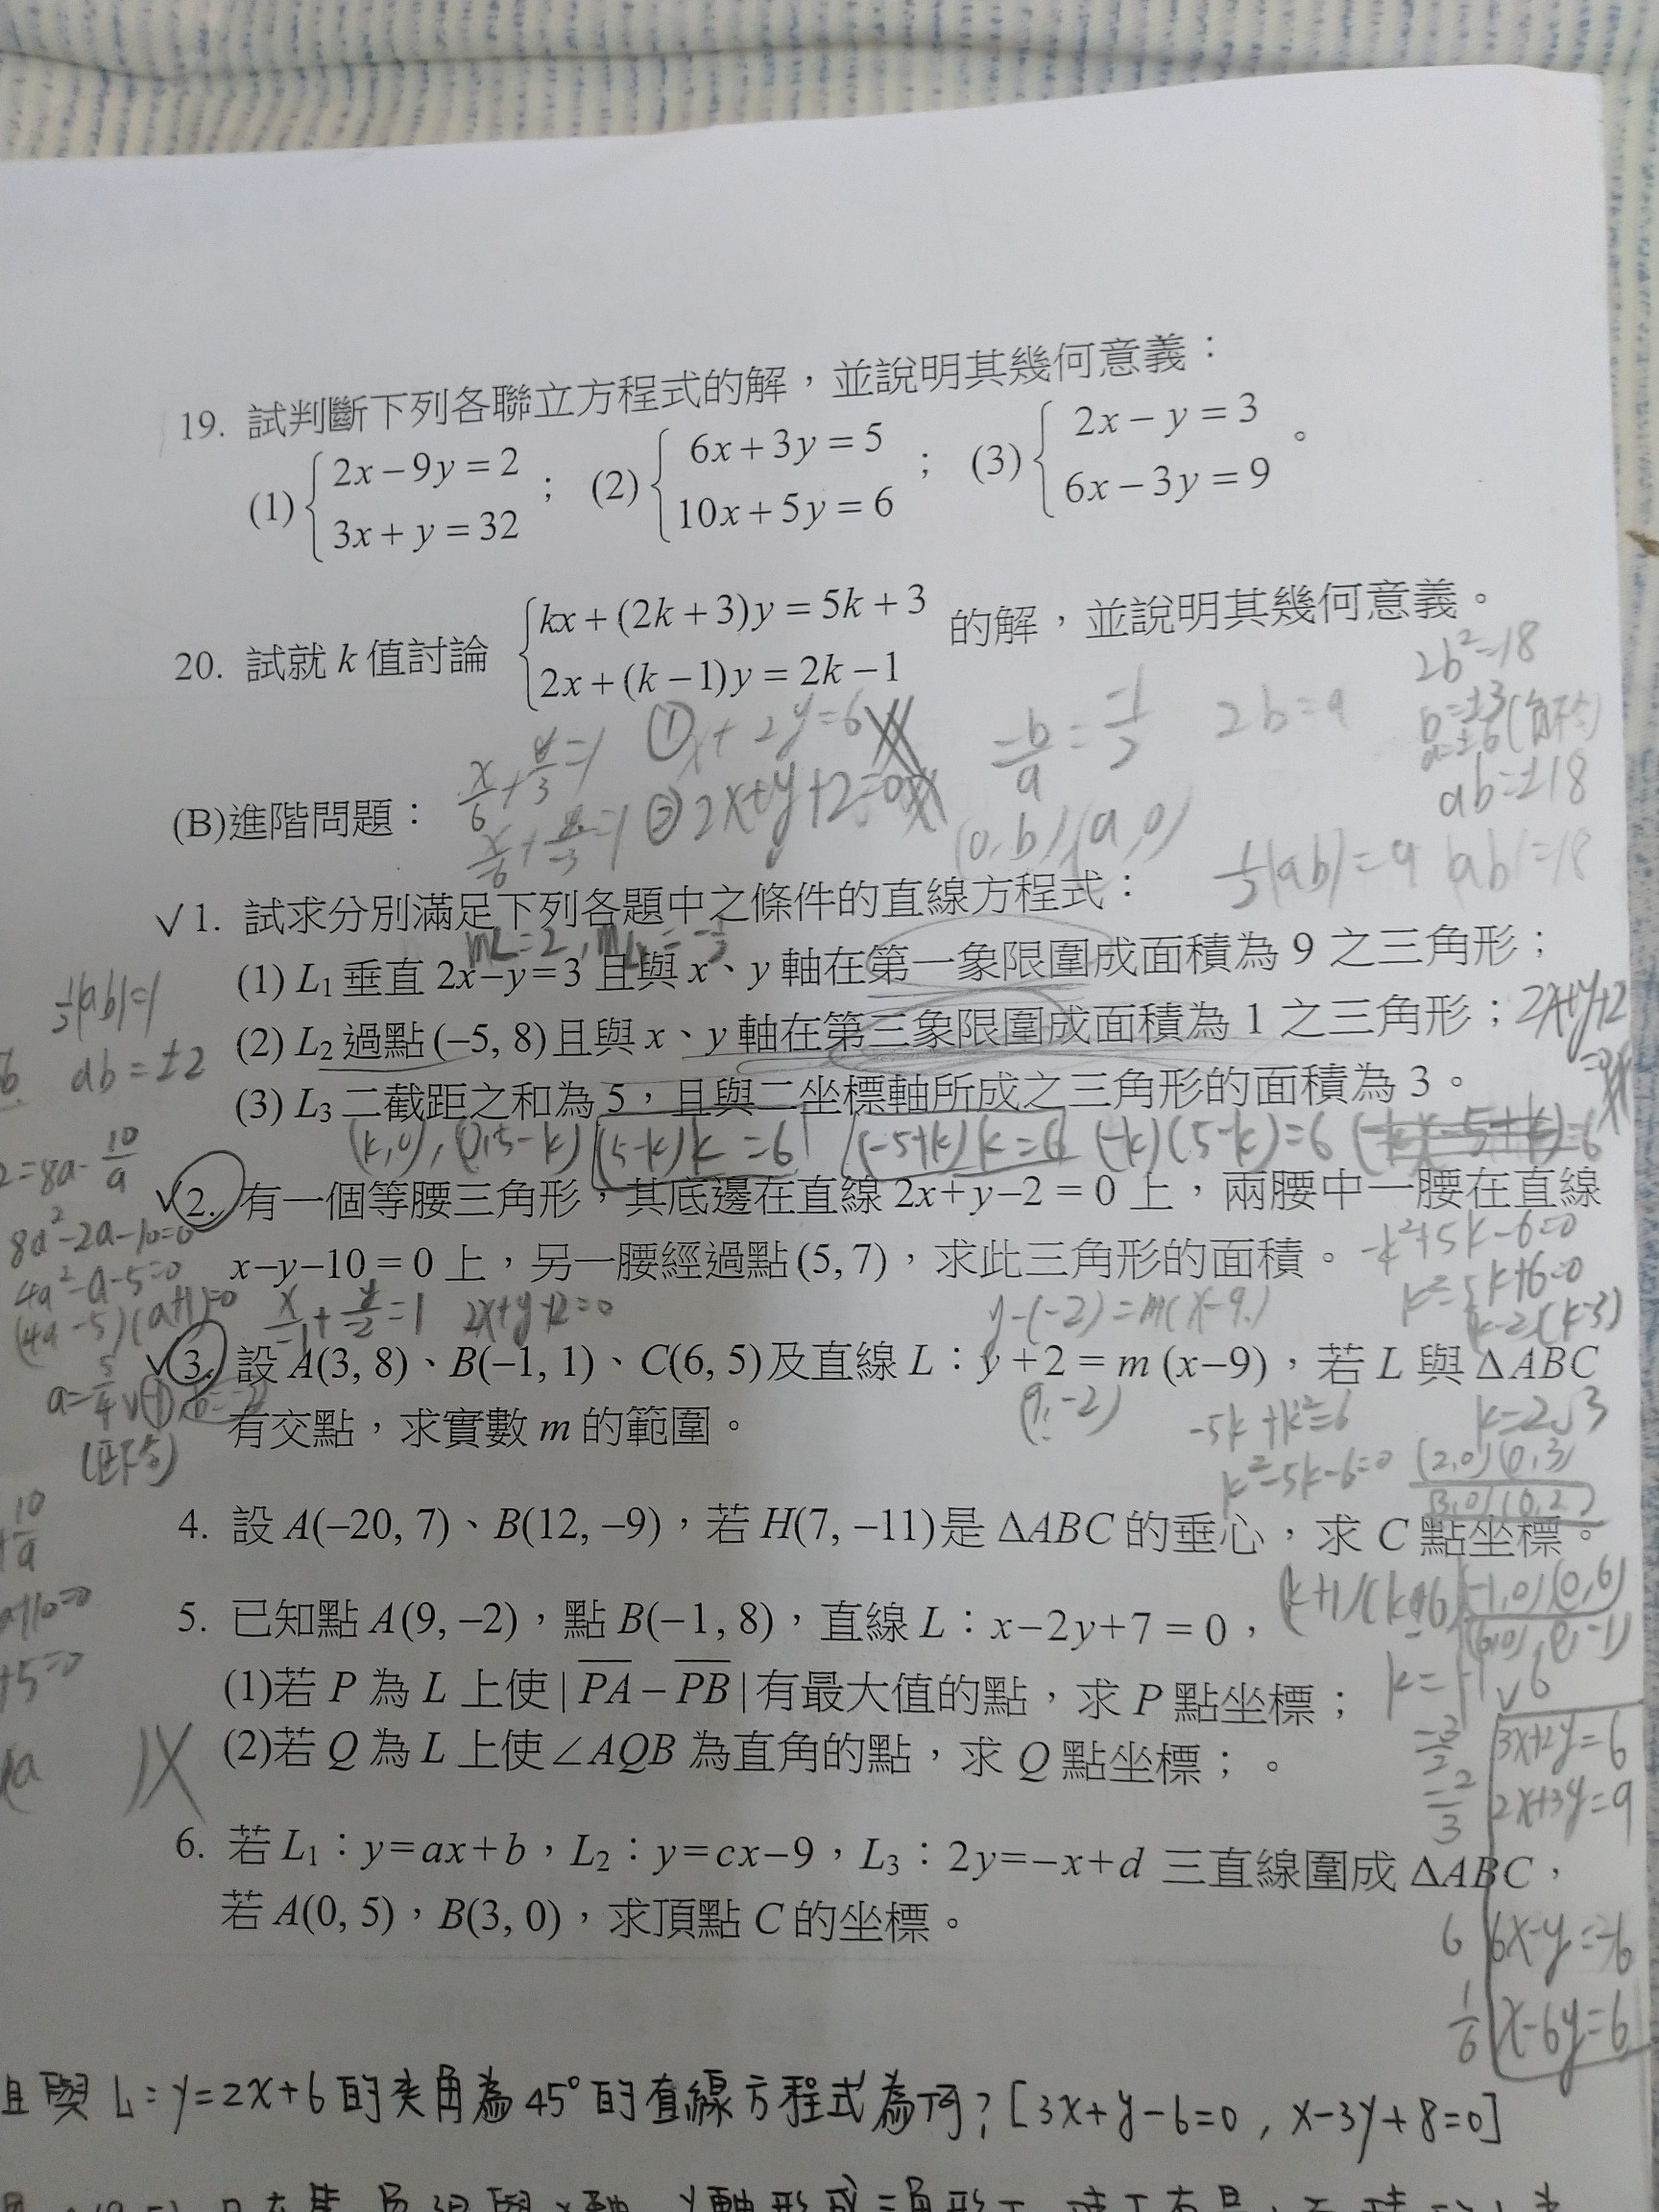 19. 試判斷下列各聯立方程式的解，並說明其幾何意義：
(1) { 2x－9y＝2 ; (2) { 6x＋3y＝5 ; (3) { 2x－y＝3 。
3x＋y＝32 10x＋5y＝6 6x－3y＝9
20. 試就 k 值討論 { kx＋(2k＋3)y＝5k＋3 的解，並說明其幾何意義。
2x＋(k－1)y＝2k－1
2b²=18
x/6+y/3=1 ①x+2y=6 -b/a=-1/2 2b=a
ab=±18
(B)進階問題：
②2x+y+2=0
(0,b),(a,0) 1/2|ab|=9 |ab|=18
√1. 試求分別滿足下列各題中之條件的直線方程式：
(1) L₁ 垂直 2x－y＝3 且與 x、y 軸在第一象限圍成面積為 9 之三角形；
1/2|ab|=1
(2) L₂ 過點 (－5, 8) 且與 x、y 軸在第三象限圍成面積為 1 之三角形； 2x+y+2=0
ab=±2
(3) L₃ 二截距之和為 5，且與二坐標軸所成之三角形的面積為 3。
(k,0),(0,5-k) (5-k)k=6 (-5+k)k=6 (-k)(5-k)=6
2=8a-10/a
√2. 有一個等腰三角形，其底邊在直線 2x＋y－2＝0 上，兩腰中一腰在直線
8a²-2a-10=0
x－y－10＝0 上，另一腰經過點(5, 7)，求此三角形的面積。 -k²+5k-6=0
4a²-a-5=0
(4a-5)(a+1)=0 x/-1+y/-2=1 2x+y+2=0 y-(-2)=m(x-9) k²-5k+6=0
(k-2)(k-3)
√3. 設 A(3, 8)、B(－1, 1)、C(6, 5)及直線 L：y＋2＝m (x－9)，若 L 與 ΔABC
(9,-2) -5k+k²=6 k=2,3
有交點，求實數 m 的範圍。
k²-5k-6=0 (2,0)(0,3)
(3,0)(0,2)
4. 設 A(－20, 7)、B(12, －9)，若 H(7, －11)是 ΔABC 的垂心，求 C 點坐標。
5. 已知點 A(9, －2)，點 B(－1, 8)，直線 L：x－2y＋7＝0，
(-1,0)(0,6)
(6,0),(0,-1)
(1)若 P 為 L 上使 | PA－PB | 有最大值的點，求 P 點坐標；
(2)若 Q 為 L 上使∠AQB 為直角的點，求 Q 點坐標；。
-3/2 3x+2y=6
-2/3 2x+3y=9
6. 若 L₁：y＝ax＋b，L₂：y＝cx－9，L₃：2y＝－x＋d 三直線圍成 ΔABC，
若 A(0, 5)，B(3, 0)，求頂點 C 的坐標。
6 6x-y=-6
1/6 x-6y=6
且與 L：y=2x+6 的夾角為 45° 的直線方程式為何？[3x+y-6=0 , x-3y+8=0]